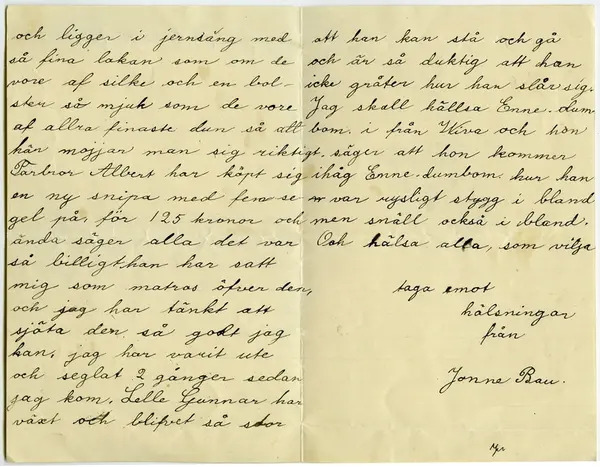 och ligger i jernsäng med
så fina lakan som om de
vore af silke och en bol-
ster så mjuk som de vore
af allra finaste dun så att
här mojjar man sig riktigt.
Farbror Albert har köpt sig
en ny snipa med fem se-
gel på, för 125 kronor och
ända säger alla det var
så billigt, han har satt
mig som matros öfver den,
och jag har tänkt att
sjöta den så godt jag
kan, jag har varit ute
och seglat 2 gånger sedan
jag kom. Lelle Gunnar har
växt och blifvet så stor
att han kan stå och gå
och är så duktig att han
icke gråter hur han slår sig.
Jag skall hällsa Enne-dum-
bom. i från Wiva och hon
säger att hon kommer
ihåg Enne-dumbom. hur han
var rysligt stygg i bland
men snäll också i bland.
Och hälsa alla, som vilja
taga emot
hälsningar
från
Jonne Bau.